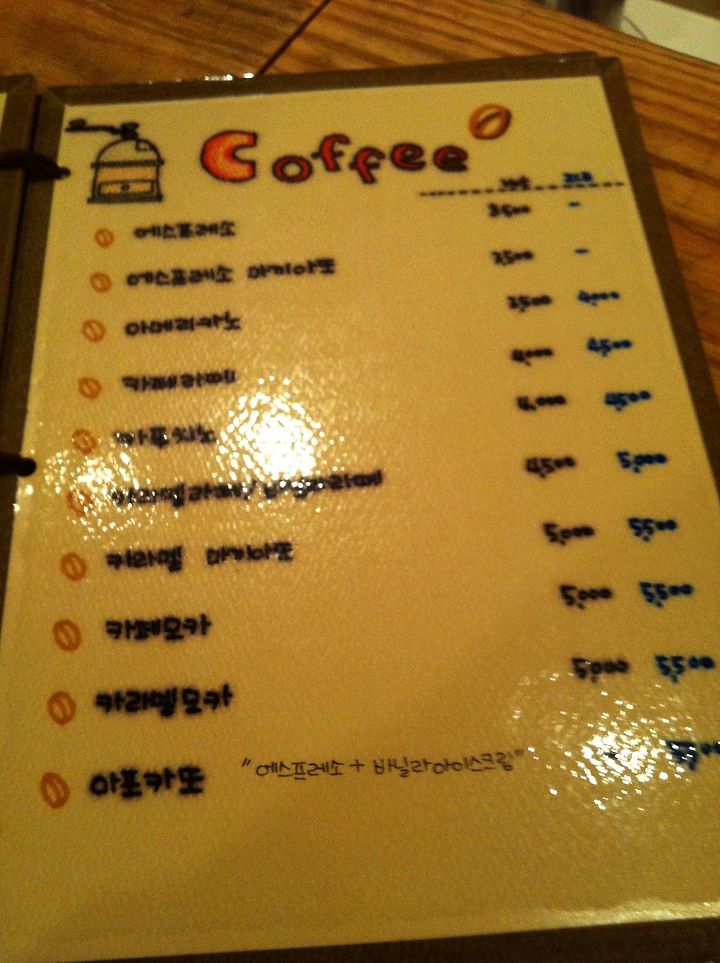 Coffee
에스프레소 3,500 -
에스프레소 마끼아또 3,500 -
아메리카노 3,500 4,000
카페라떼 4,000 4,500
카푸치노 4,000 4,500
카라멜라떼/바닐라라떼 4,500 5,000
카라멜 마끼아또 5,000 5,500
카페모카 5,000 5,500
카라멜모카 5,000 5,500
아포카또 "에스프레소 + 바닐라아이스크림"